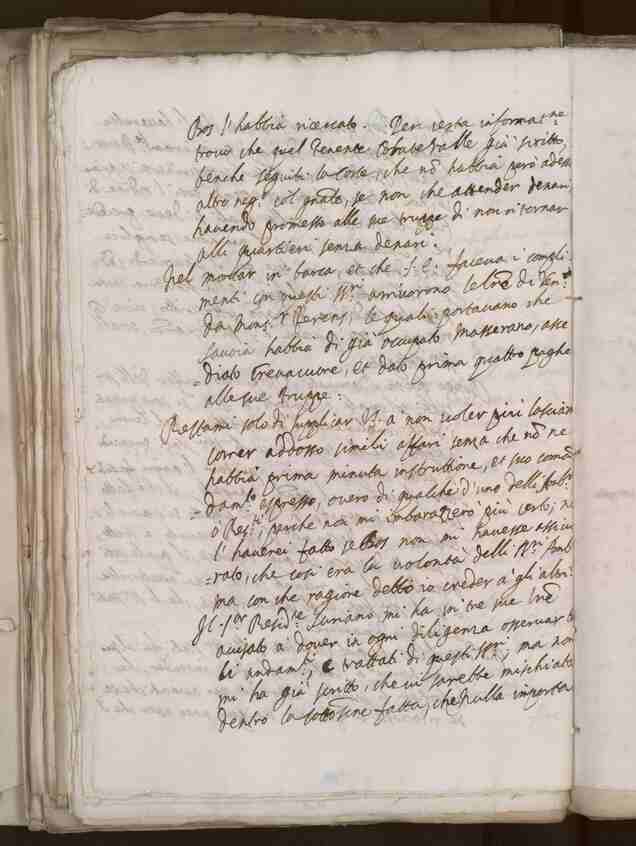 Bos l'habbia ricercato. Per certa informat.ne
trovo che quel Tenente già scritto,
benche seguiti la Corte, che nõ habbia però adesso
altro neg.o col gñale, se non che attender denari,
havendo promesso alle sue truppe di non ritornar
alli quartieri senza denari.
Nel montar in barca, et che S. E. faceva i compli
menti con questi SS.ri arrivorono lettre di
da Mons.r le quali portavano che
Savoia habbia di già occupato Masserano, asse
diato Crevacuore, et dato prima quattro paghe
alle sue truppe.
Restami solo di supplicar V.S. a non voler più lasciarmi
correr addosso simili affari senza che nõ ne
habbia prima minuta instruttione, et suo coman
dam.to espresso, overo di qualche d'uno delli Amb.ri
ò Res.ti, perche non mi imbarazzerò più certo; nè
l'haverei fatto se Bos non mi havesse assicu
rato, che così era la volontà delli SS.ri Amb.
ma con che ragione debbo io creder à gli altri.
Il S.or Resid.te Suriano mi ha in tre sue lrẽ
avisato à dover in ogni diligenza osservar
li andam.ti, e trattati di questi SS.ri, ma non
mi ha già scritto, che vi sarebbe mischiato
dentro la fatta, che nulla importa